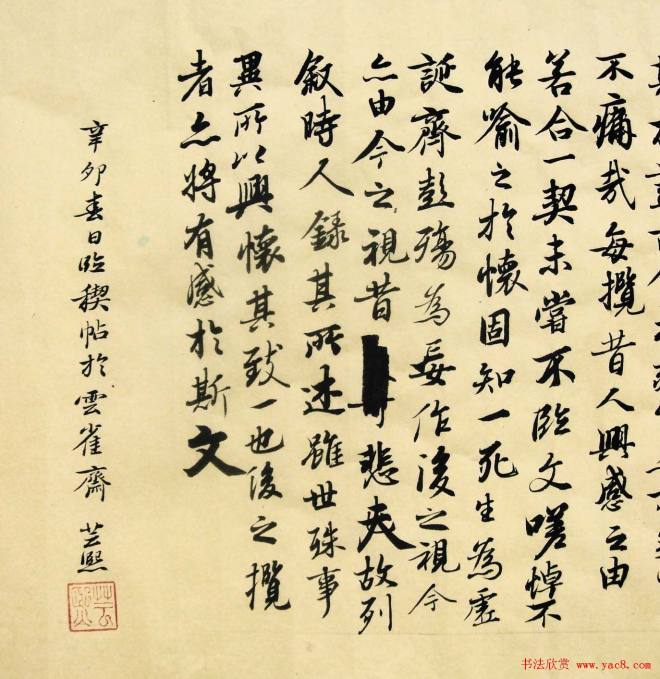 不痛哉每攬昔人興感之由
若合一契未嘗不臨文嗟悼不
能喻之於懷固知一死生為虛
誕齊彭殤為妄作後之視今
亦由今之視昔悲夫故列
敘時人錄其所述雖世殊事
異所以興懷其致一也後之攬
者亦將有感於斯文
辛卯春日臨稧帖於雲雀齋 芸熙
书法欣赏 www.yac8.com